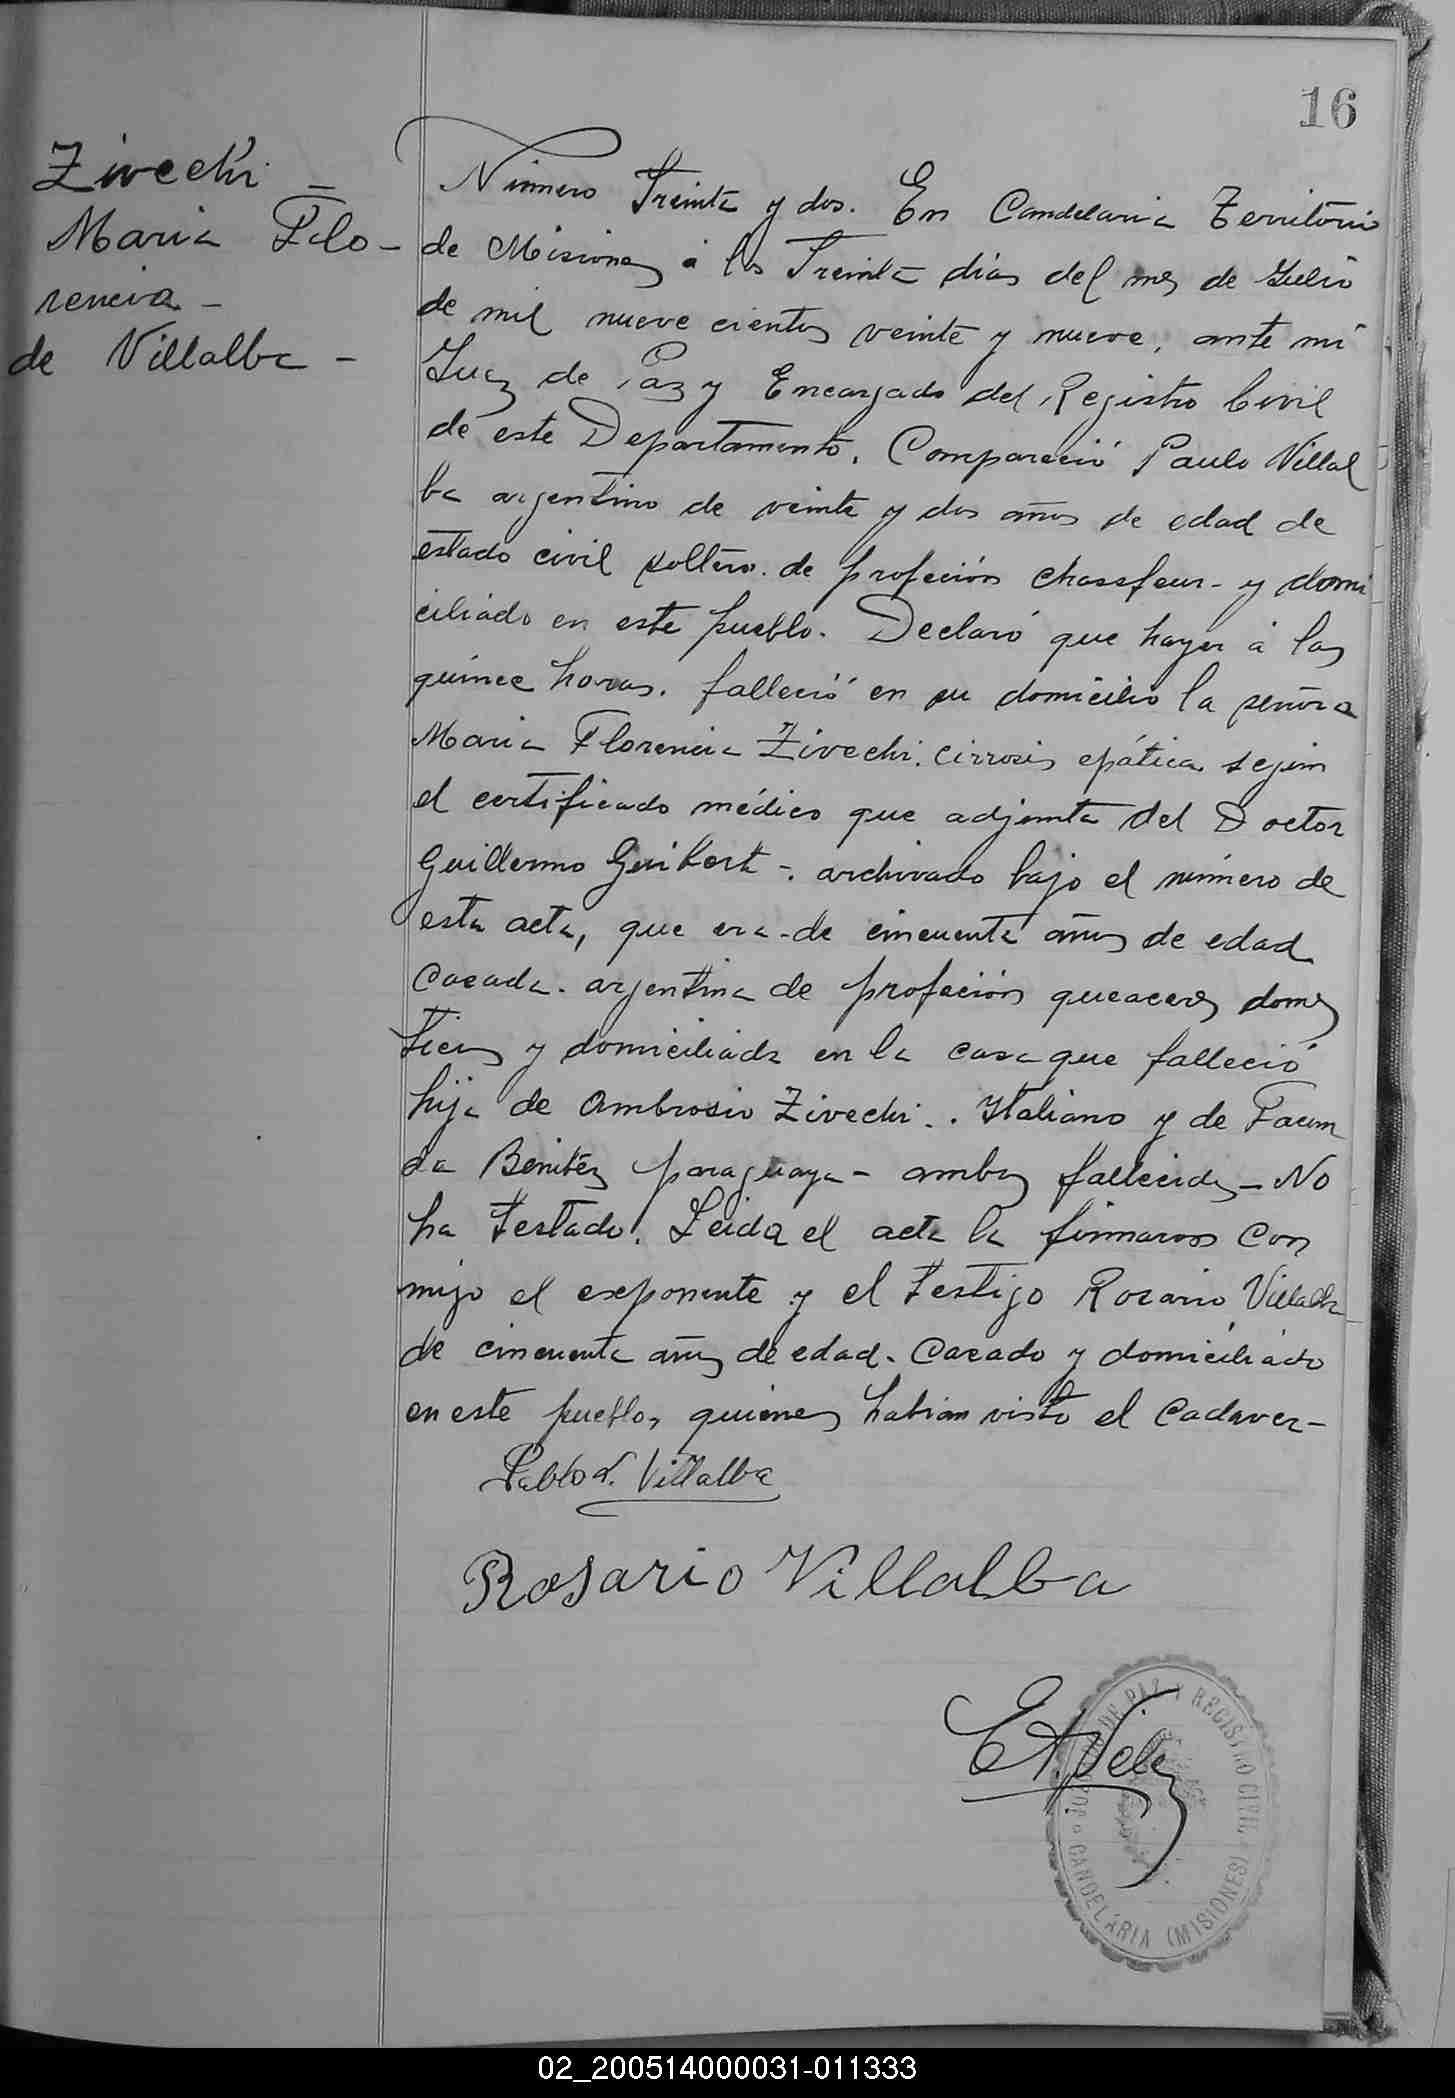 16
Zivechi =
Maria Flo-
rencia -
de Villalba -
Número Treinta y dos. En Candelaria Territorio
de Misiones á los Treinta dias del mes de Julio
de mil nueve cientos veinte y nueve, ante mi
Juez de Paz y Encargado del Registro Civil
de este Departamento, Compareció Paulo Villal
ba argentino de veinte y dos años de edad de
estado civil soltero. de profeción chassfeur - y domi
ciliádo en este pueblo. Declaró que hayer á las
quince horas. falleció en su domicilio la señora
Maria Florencia Zivechi. cirrosis epática segun
el certificado médico que adjunta del Doctor
Guillermo Guibert -. archivado bajo el número de
esta acta, que era de cincuenta años de edad
Casada. argentina de profeción queaceres domes
ticos y domiciliada en la casa que falleció
hija de Ambrosio Zivechi . . Italiano y de Facun
da Benitéz paraguaya - ambos fallecidos - No
ha testado. Leida el acta la firmaron con
migo el exponente y el testigo Rosario Villalba
de cincuenta años de edad. Casado y domiciliádo
en este pueblo, quienes habian visto el Cadaver -
Pablo Villalba
Rosario Villalba
E A Velez
JUZGADO DE PAZ Y REGISTRO CIVIL
CANDELARIA (MISIONES)
02_200514000031-011333